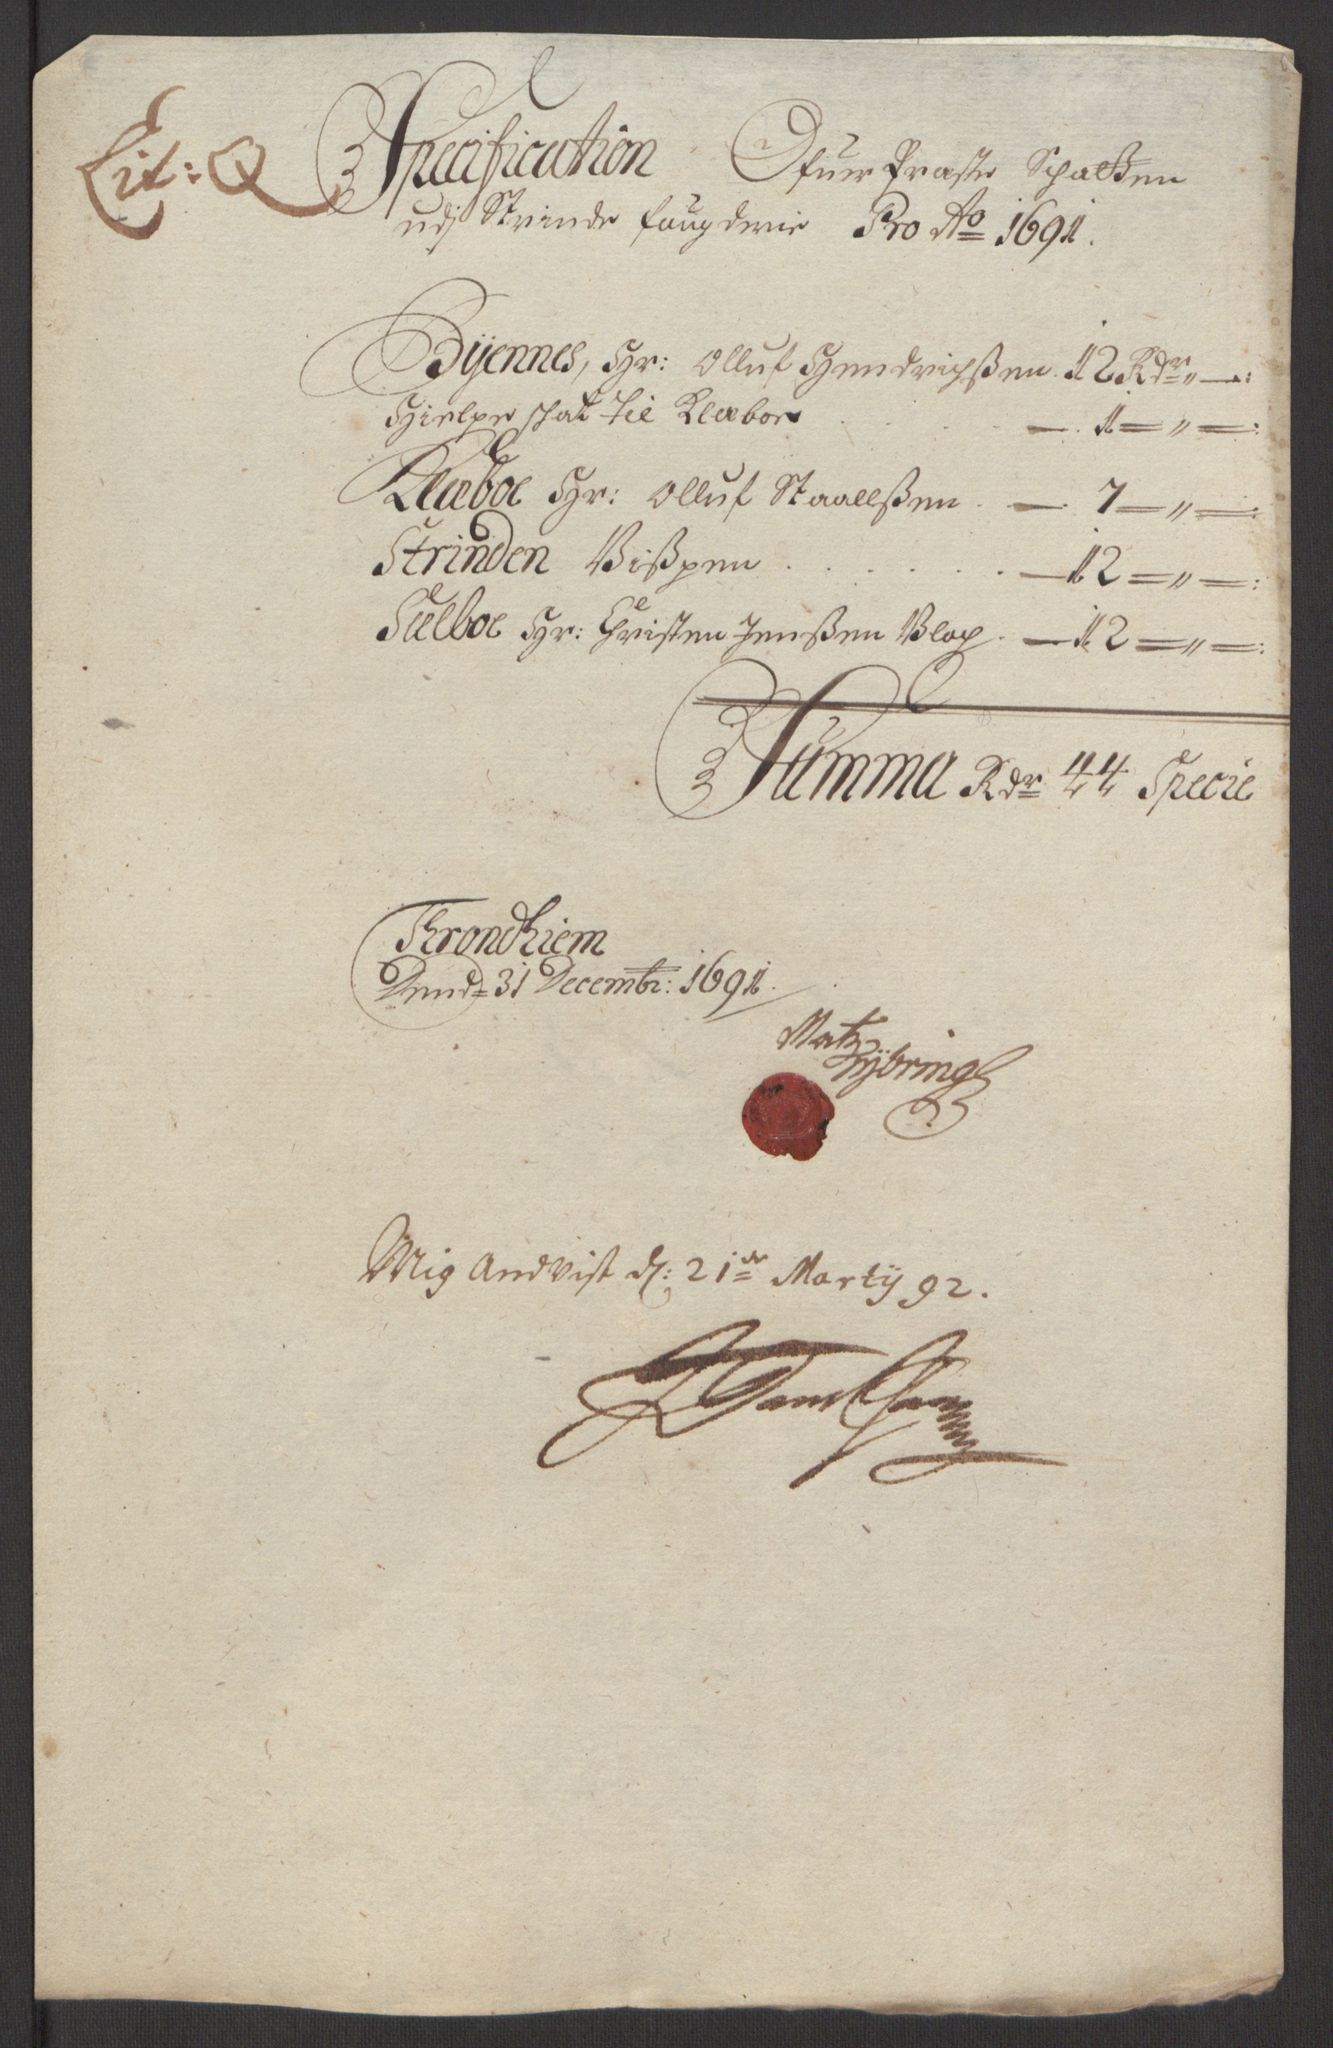 Lit: Q
Specification Ofuer Præste Schatten
udj Strinde fougderie Pro Ao 1691.
Byennes, Hr: Olluf Hendrichßen. 12 Rdr „ — :
Hielpe schat til Klæboe . . . — 1 — „ — :
Klæboe Hr: Olluf Staallßen . — 7 — „ — :
Strinden Bißpen . . . . . — 12 — „ — :
Sælboe Hr: Christen Jenßen Blog . — 12 — „ — :
Summa Rdr 44 Specie
Throndhiem
Dend 31 Decembr: 1691.
Matz
Nybring
Mig Andvist d: 21de Martij 92.